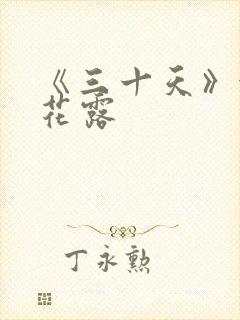 《三十天》
花露
丁永勲